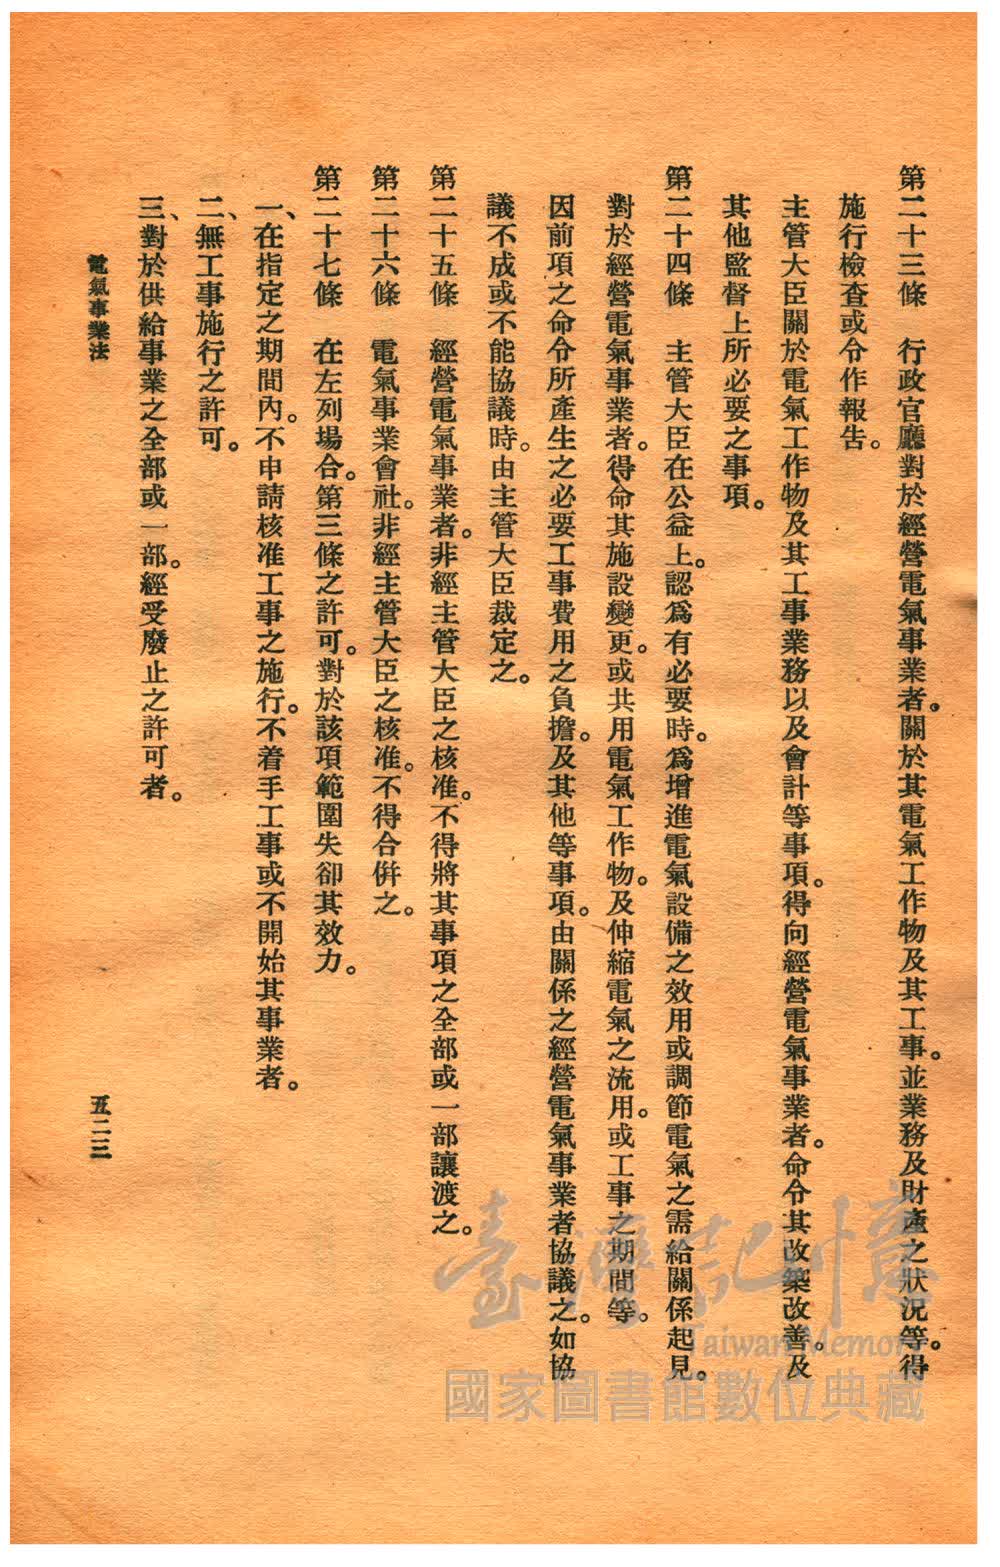 第二十三條　行政官廳對於經營電氣事業者。關於其電氣工作物及其工事。並業務及財產之狀況等。得
施行檢查或令作報告。
主管大臣關於電氣工作物及其工事業務以及會計等事項。得向經營電氣事業者。命令其改築改善。及
其他監督上所必要之事項。
第二十四條　主管大臣在公益上。認爲有必要時。爲增進電氣設備之效用或調節電氣之需給關係起見。
對於經營電氣事業者。得命其施設變更。或共用電氣工作物。及伸縮電氣之流用。或工事之期間等。
因前項之命令所產生之必要工事費用之負擔。及其他等事項。由關係之經營電氣事業者協議之。如協
議不成或不能協議時。由主管大臣裁定之。
第二十五條　經營電氣事業者。非經主管大臣之核准。不得將其事項之全部或一部讓渡之。
第二十六條　電氣事業會社。非經主管大臣之核准。不得合併之。
第二十七條　在左列場合。第三條之許可。對於該項範圍失卻其效力。
一、在指定之期間內。不申請核准工事之施行。不着手工事或不開始其事業者。
二、無工事施行之許可。
三、對於供給事業之全部或一部。經受廢止之許可者。
電氣事業法
五二三
臺灣記憶
Taiwan Memory
國家圖書館數位典藏